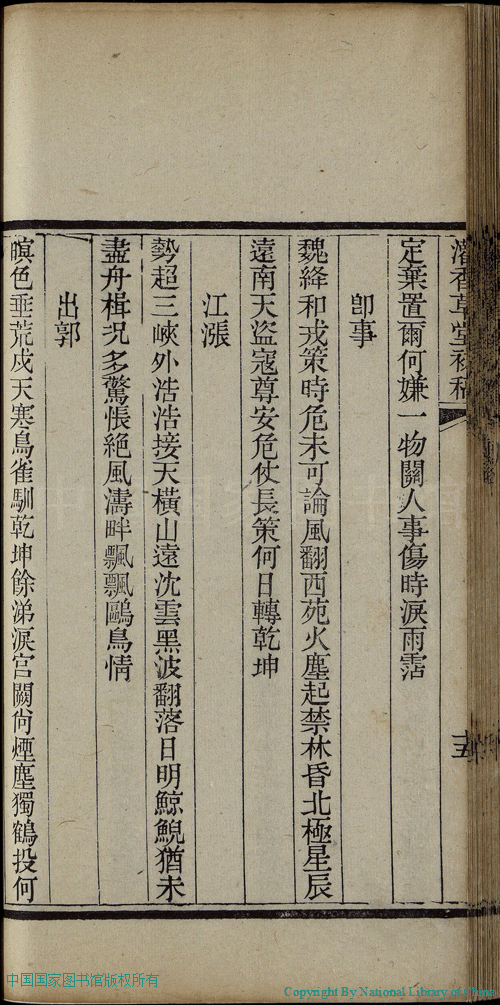 香草堂
十五
定棄置爾何嫌一物關人事傷時淚雨霑
卽事
魏絳和戎策時危未可論風翻西苑火塵起禁林昏北極星辰
遠南天盜寇尊安危仗長策何日轉乾坤
江漲
勢超三峽外浩浩接天橫山遠沈雲黑波翻落日明鯨鯢猶未
盡舟楫況多驚悵絕風濤畔飄飄鷗鳥情
出郭
暝色垂荒戍天寒鳥雀馴乾坤餘涕淚宮闕尙煙塵獨鶴投何
中国国家图书馆版权所有
Copyright By National Library of China